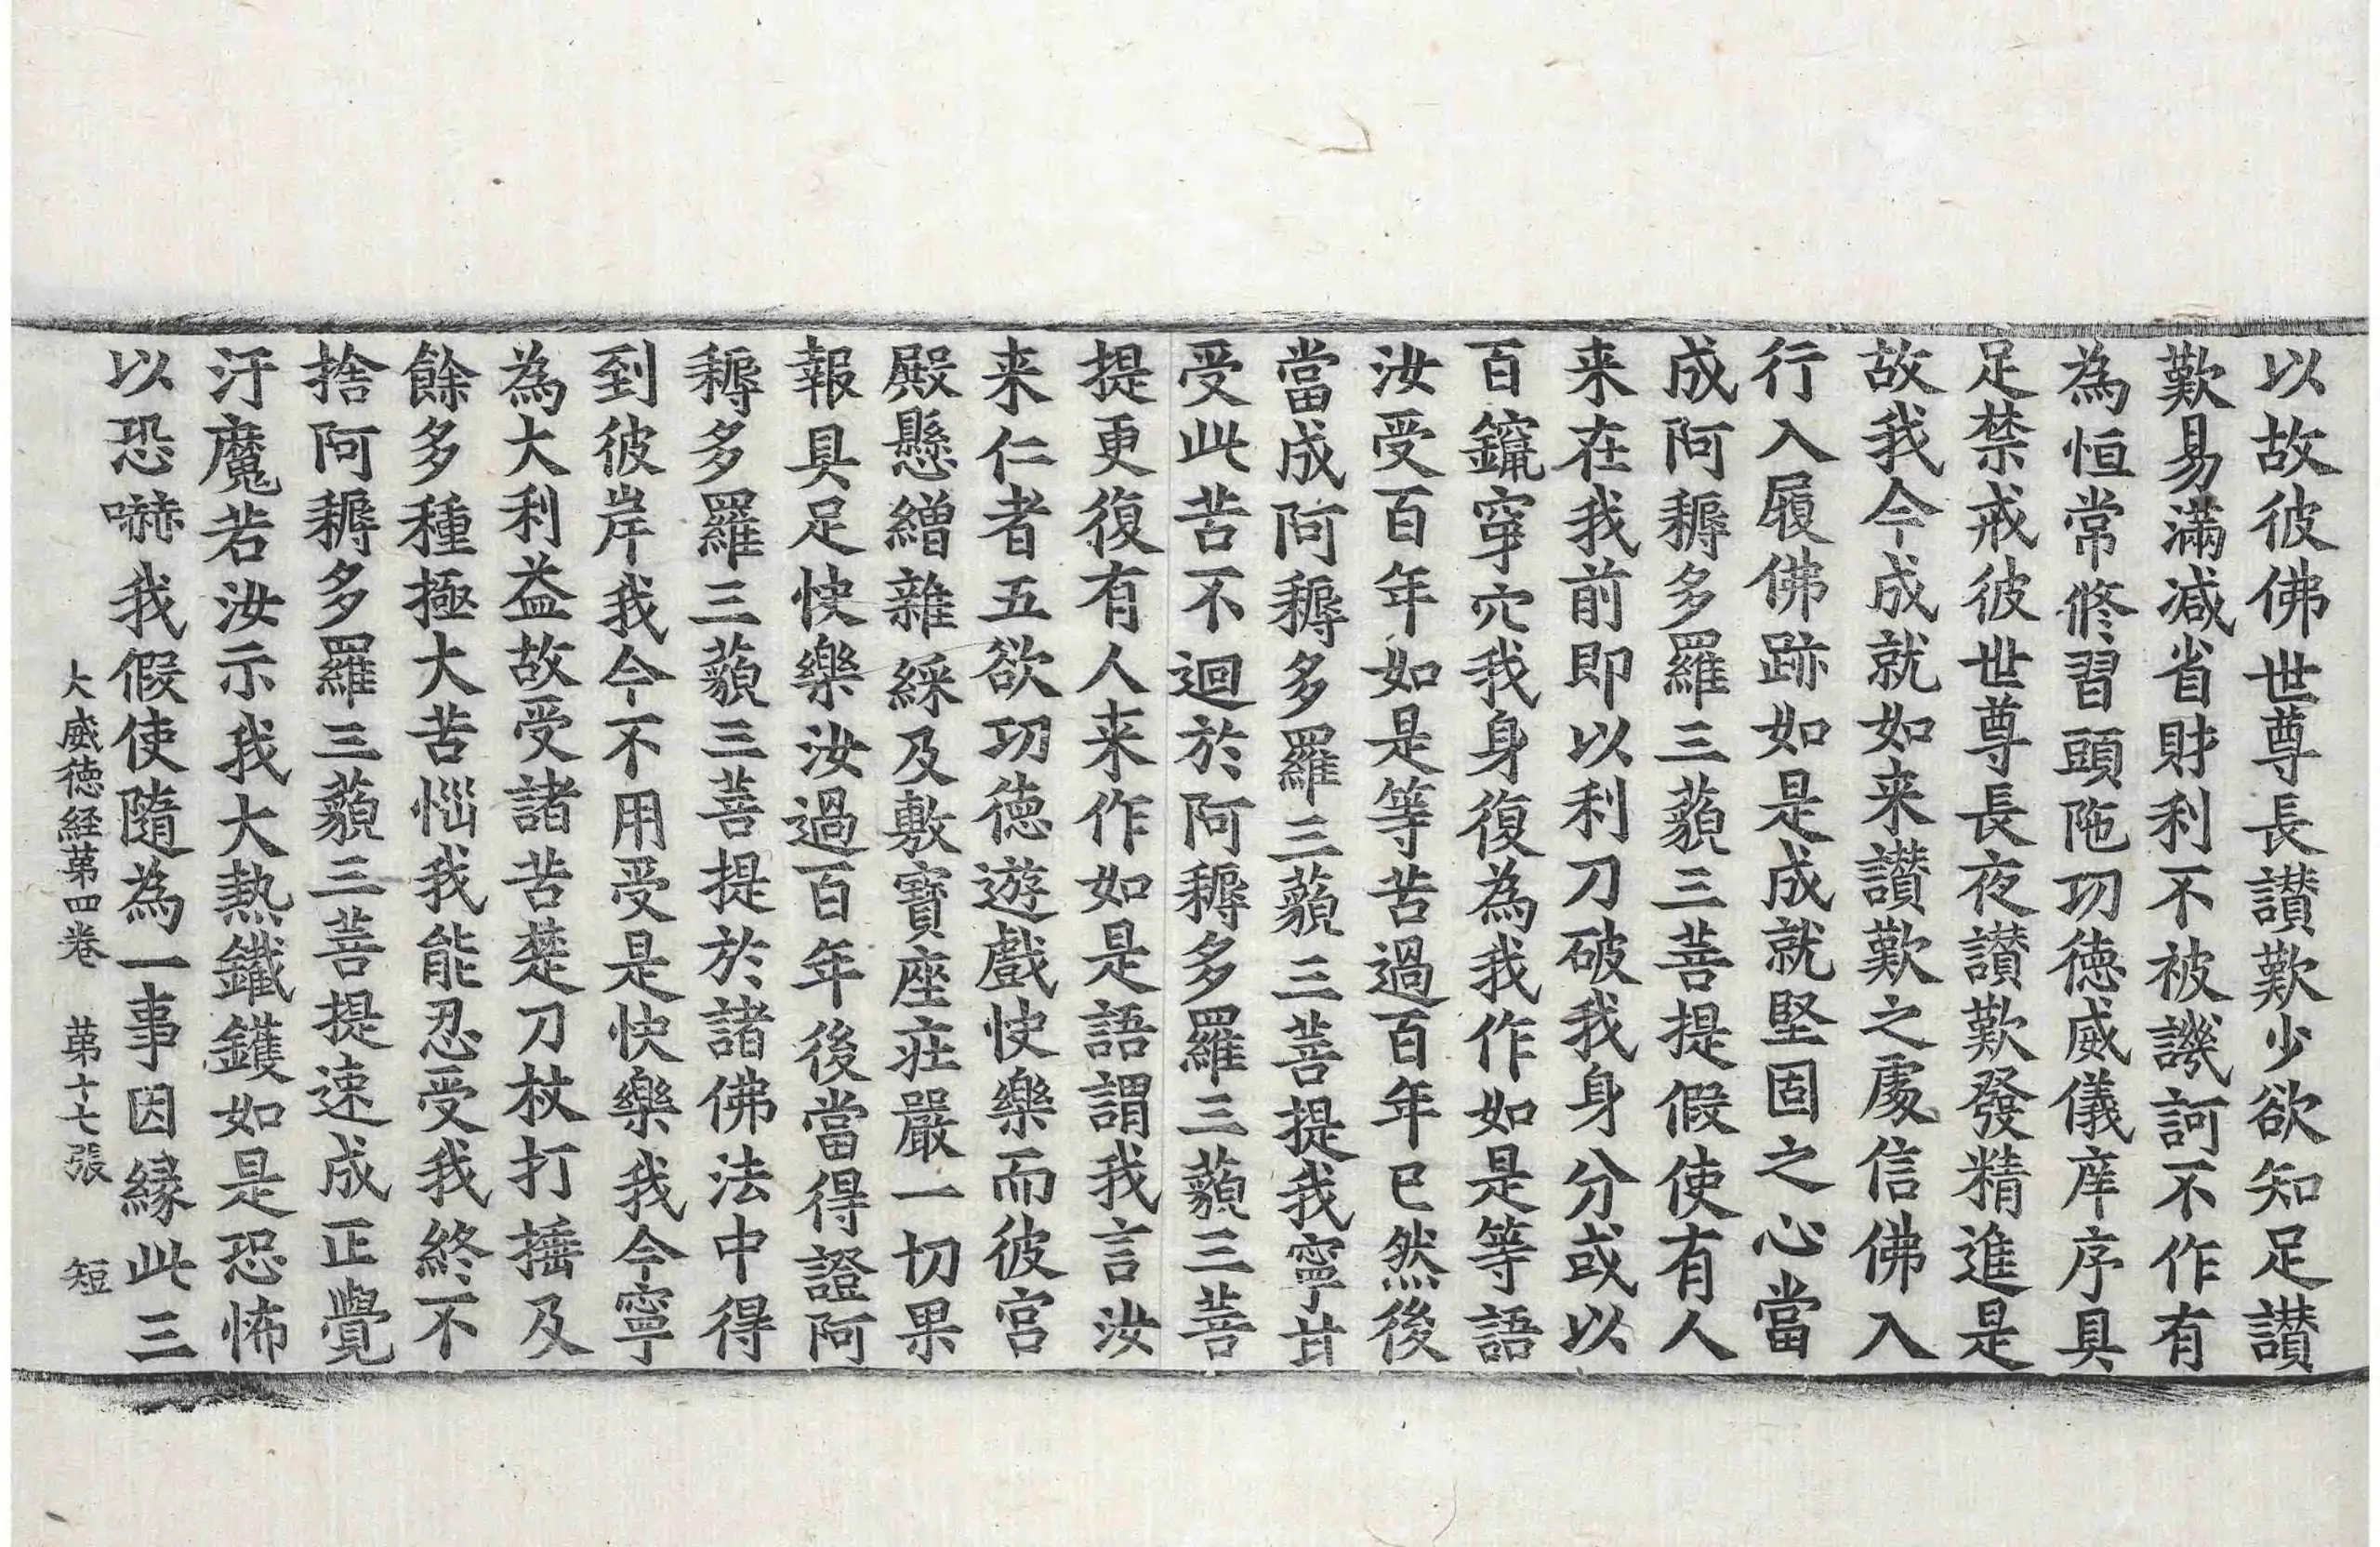 以故彼佛世尊長讃歎少欲知足讃
歎易滿減省財利不被譏訶不作有
為恒常修習頭陁功德威儀庠序具
足禁戒彼世尊長夜讃歎發精進是
故我今成就如来讃歎之處信佛入
行入履佛跡如是成就堅固之心當
成阿耨多羅三藐三菩提假使有人
来在我前即以利刀破我身分或以
百鑹穿穴我身復為我作如是等語
汝受百年如是等苦過百年已然後
當成阿耨多羅三藐三菩提我寧甘
受此苦不迴於阿耨多羅三藐三菩
提更復有人来作如是語謂我言汝
来仁者五欲功德遊戲快樂而彼宫
殿懸繒雜綵及敷寶座莊嚴一切果
報具足快樂汝過百年後當得證阿
耨多羅三藐三菩提於諸佛法中得
到彼岸我今不用受是快樂我今寧
為大利益故受諸苦楚刀杖打搥及
餘多種極大苦惱我能忍受我終不
捨阿耨多羅三藐三菩提速成正覺
汙魔若汝示我大熱鐵鑊如是恐怖
以恐嚇我假使隨為一事因緣此三
大威德経苐四卷　苐十七張　短